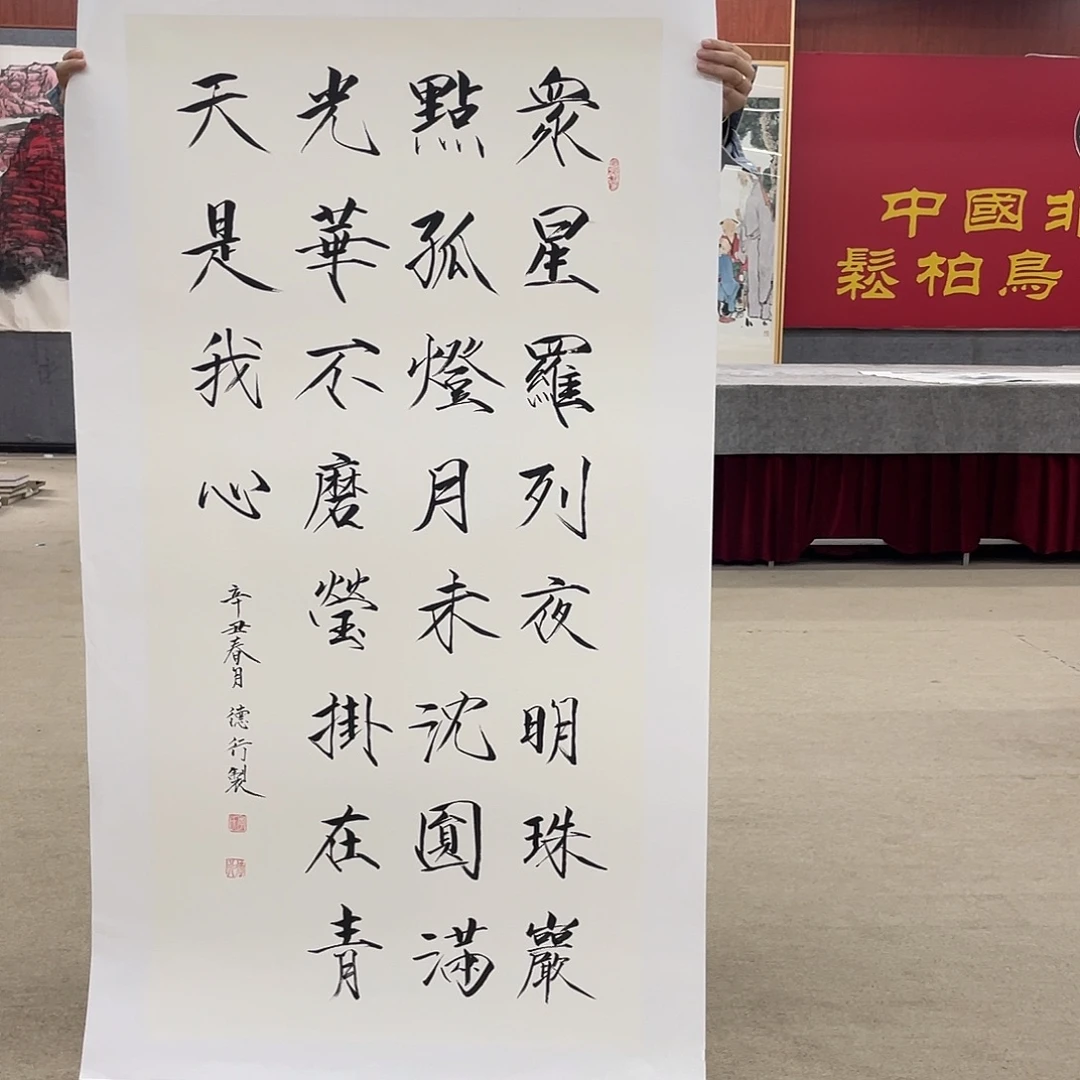 眾星羅列夜明珠巖
點孤燈月未沈圓滿
光華不磨瑩掛在青
天是我心
辛丑春月 德行製
中國非
鬆柏鳥